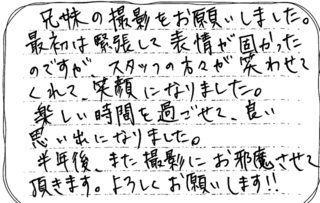 兄妹の撮影をお願いしました。
最初は緊張して表情が固かった
のですが、スタッフの方々が笑わせて
くれて、笑顔になりました。
楽しい時間を過ごせて、良い
思い出になりました。
半年後、また撮影にお邪魔させて
頂きます。よろしくお願いします!!